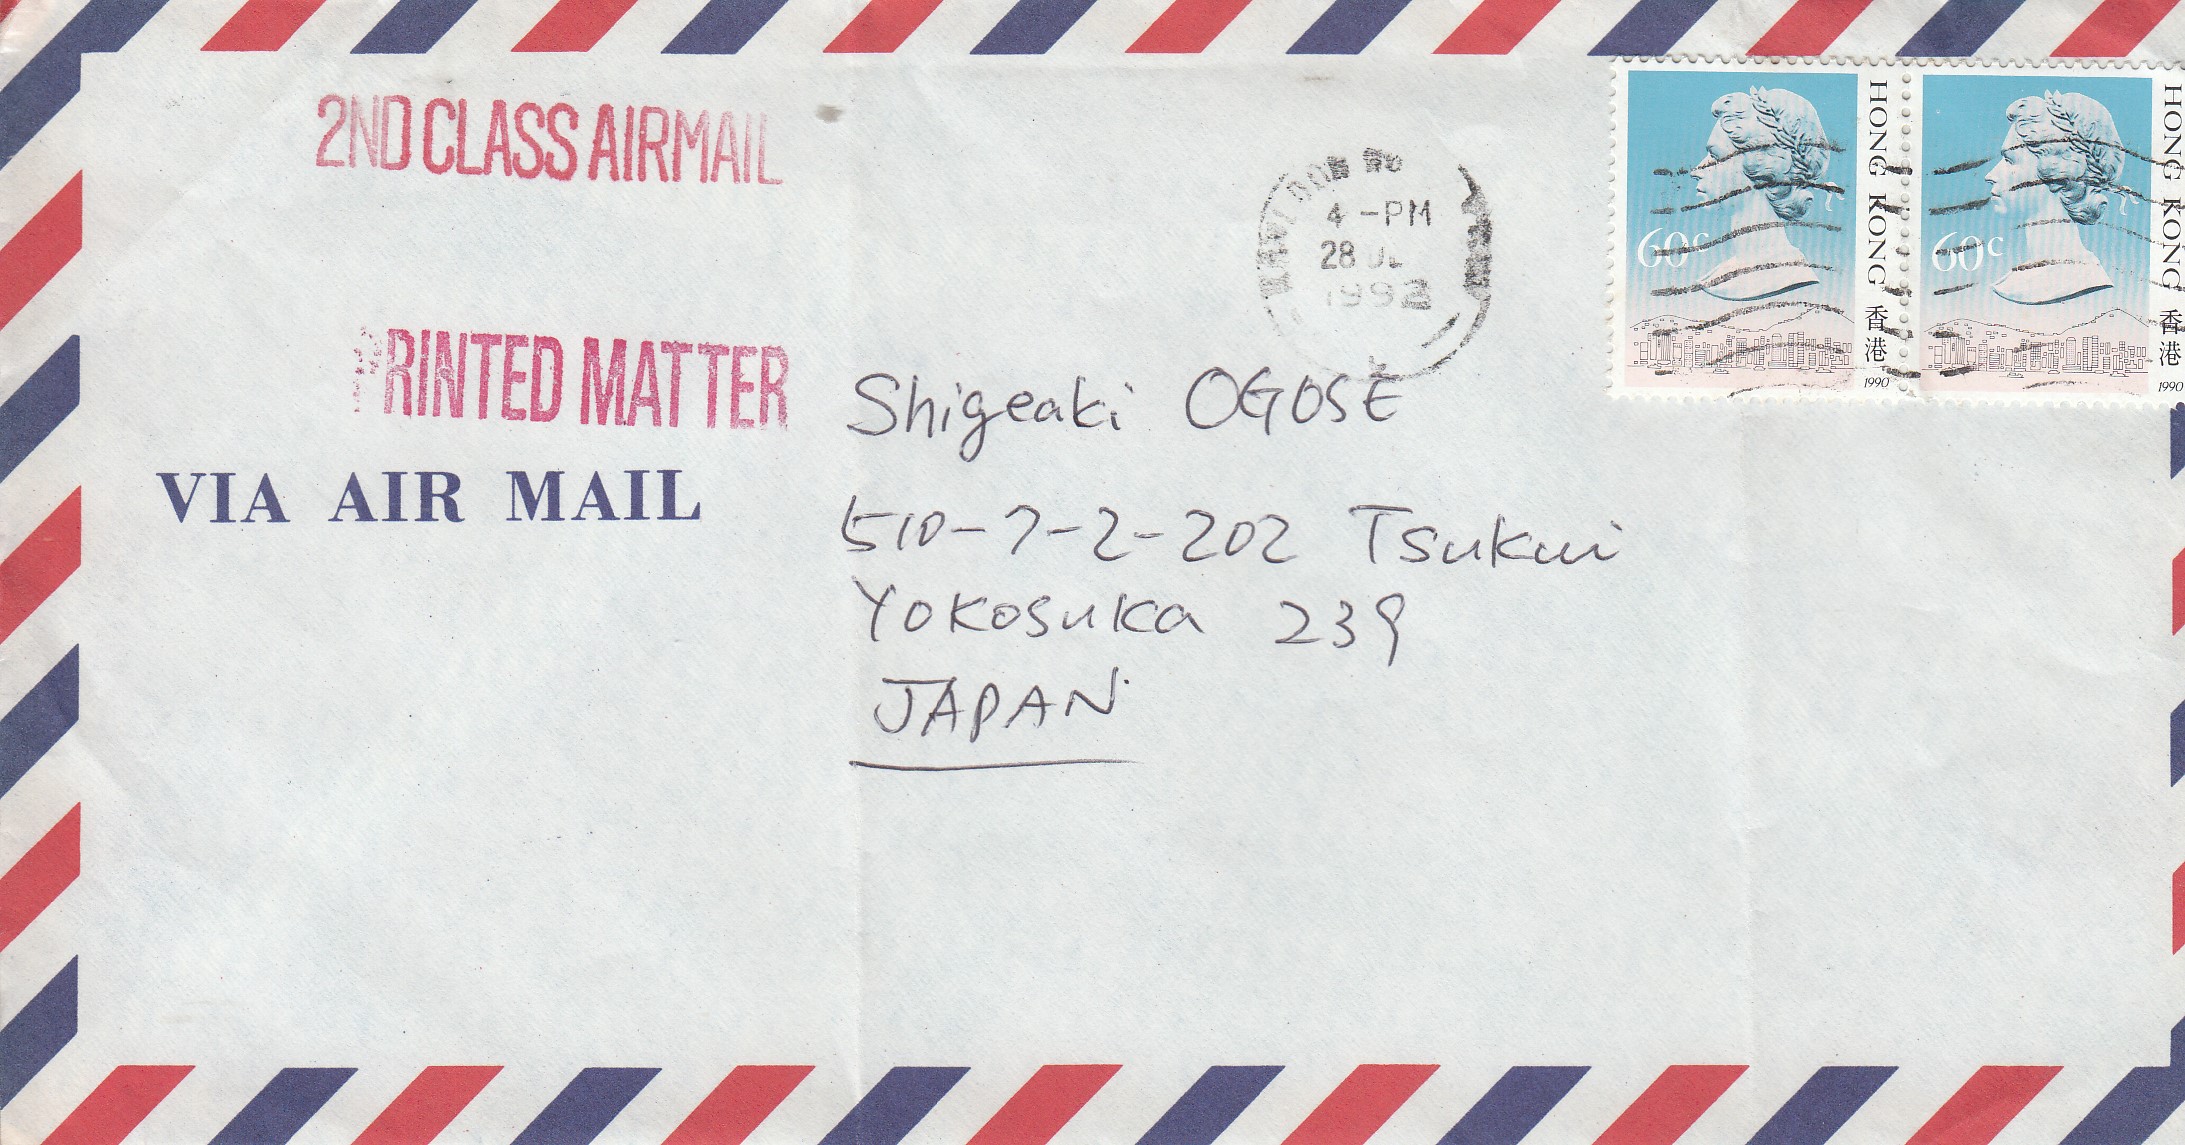 2ND CLASS AIRMAIL
PRINTED MATTER
VIA AIR MAIL
4 -PM
28
1992
60c
HONG KONG 香港
1990
60c
HONG KONG 香港
1990
Shigeaki OGOSE
510-7-2-202 Tsukui
Yokosuka 239
JAPAN